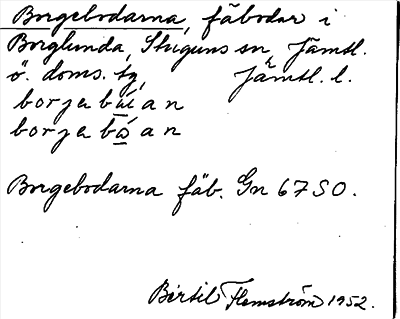 Borgebodarna, fäbodar i
Borglunda, Stuguns sn, Jämtl.
ö. doms. tg, Jämtl. l.
borjabúan
borjabóan
Borgebodarna fäb. Gn 67 SO.
Bertil Flemström 1952.